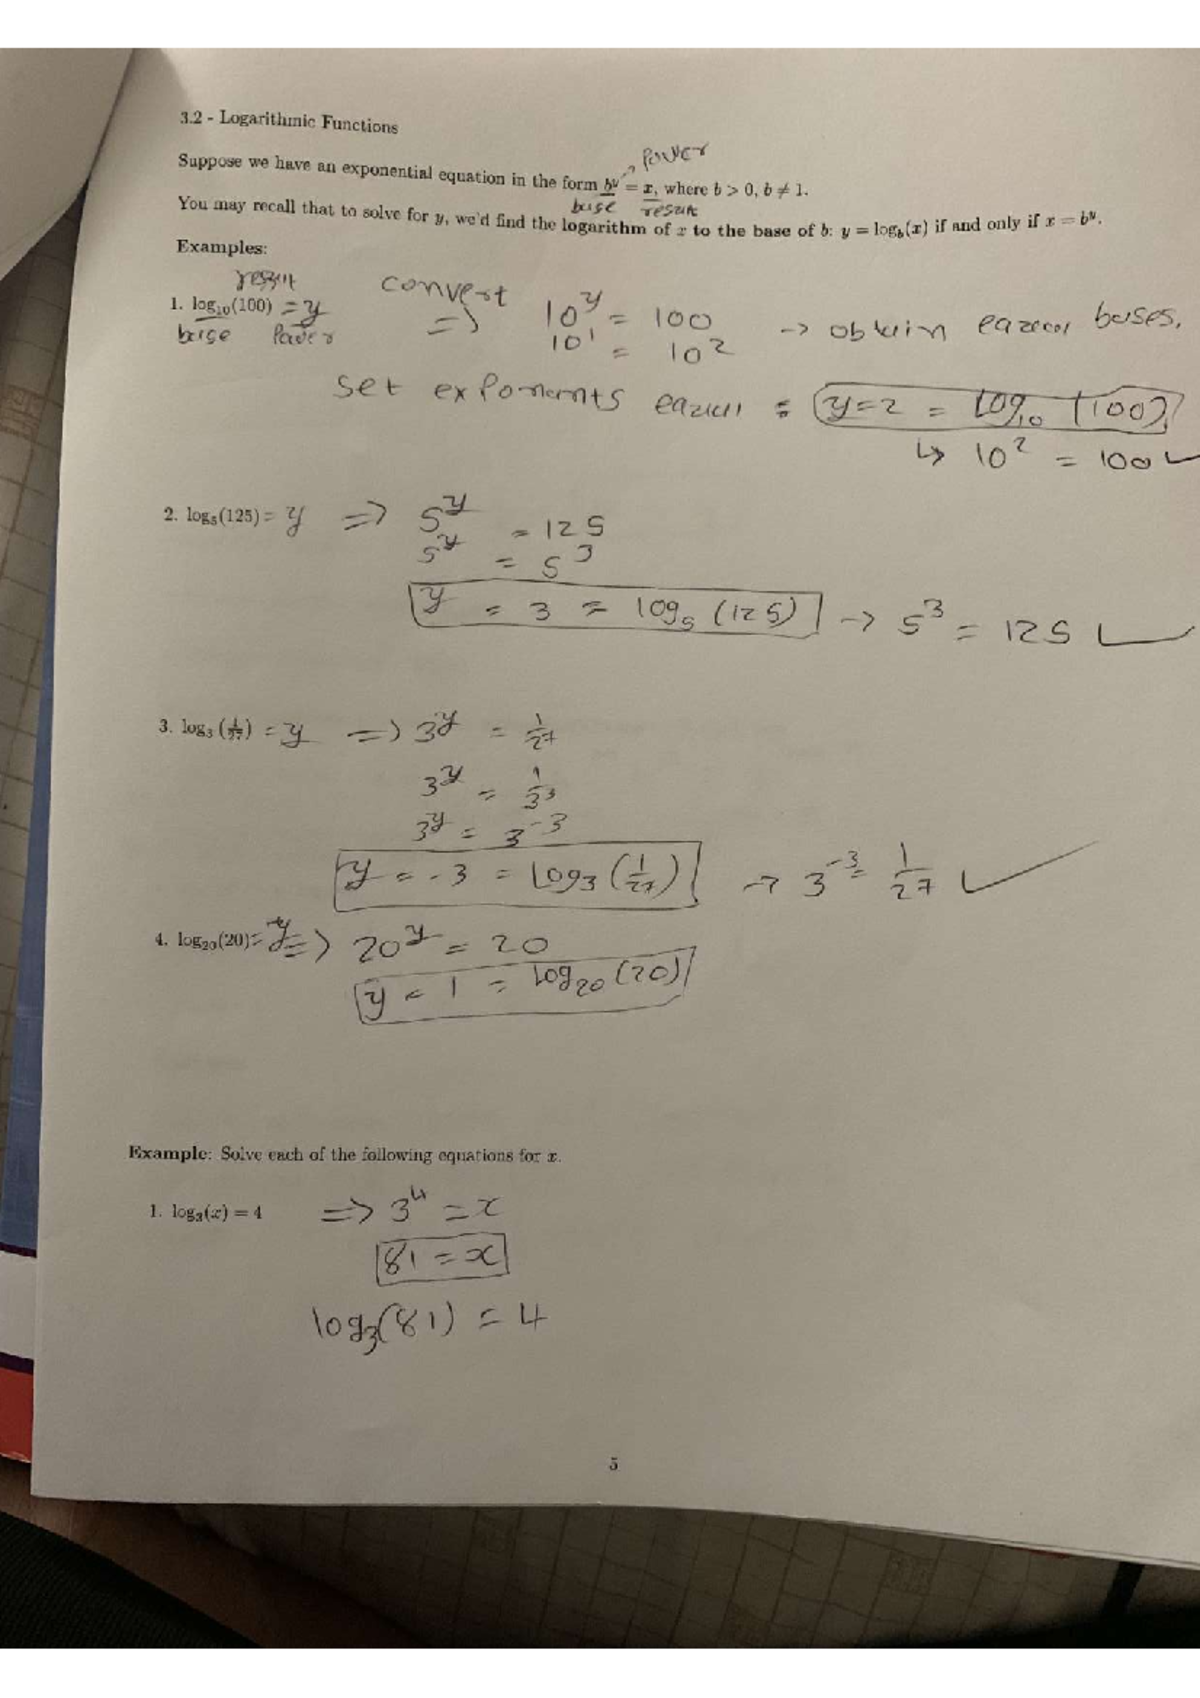 3.2 - Logarithmic Functions
Power
Suppose we have an exponential equation in the form b^y = x, where b > 0, b ≠ 1.
base result
You may recall that to solve for y, we'd find the logarithm of x to the base of b: y = log_b(x) if and only if x = b^y.
Examples:
result
1. log₁₀(100) = y convert => 10^y = 100
base Power 10^1 = 10^2 -> obtain eazcal bases.
set exponants eazual : y=2 = log₁₀ (100)
↳ 10^2 = 100 ✓
2. log₅(125) = y => 5^y = 125
5^y = 5^3
y = 3 = log₅ (125) -> 5^3 = 125 ✓
3. log₃ (1/27) = y => 3^y = 1/27
3^y = 1/3^3
3^y = 3^-3
y = -3 = log₃ (1/27) -> 3^-3 = 1/27 ✓
4. log₂₀(20) = y => 20^y = 20
y = 1 = log₂₀ (20)
Example: Solve each of the following equations for x.
1. log₃(x) = 4 => 3^4 = x
81 = x
log₃(81) = 4
5